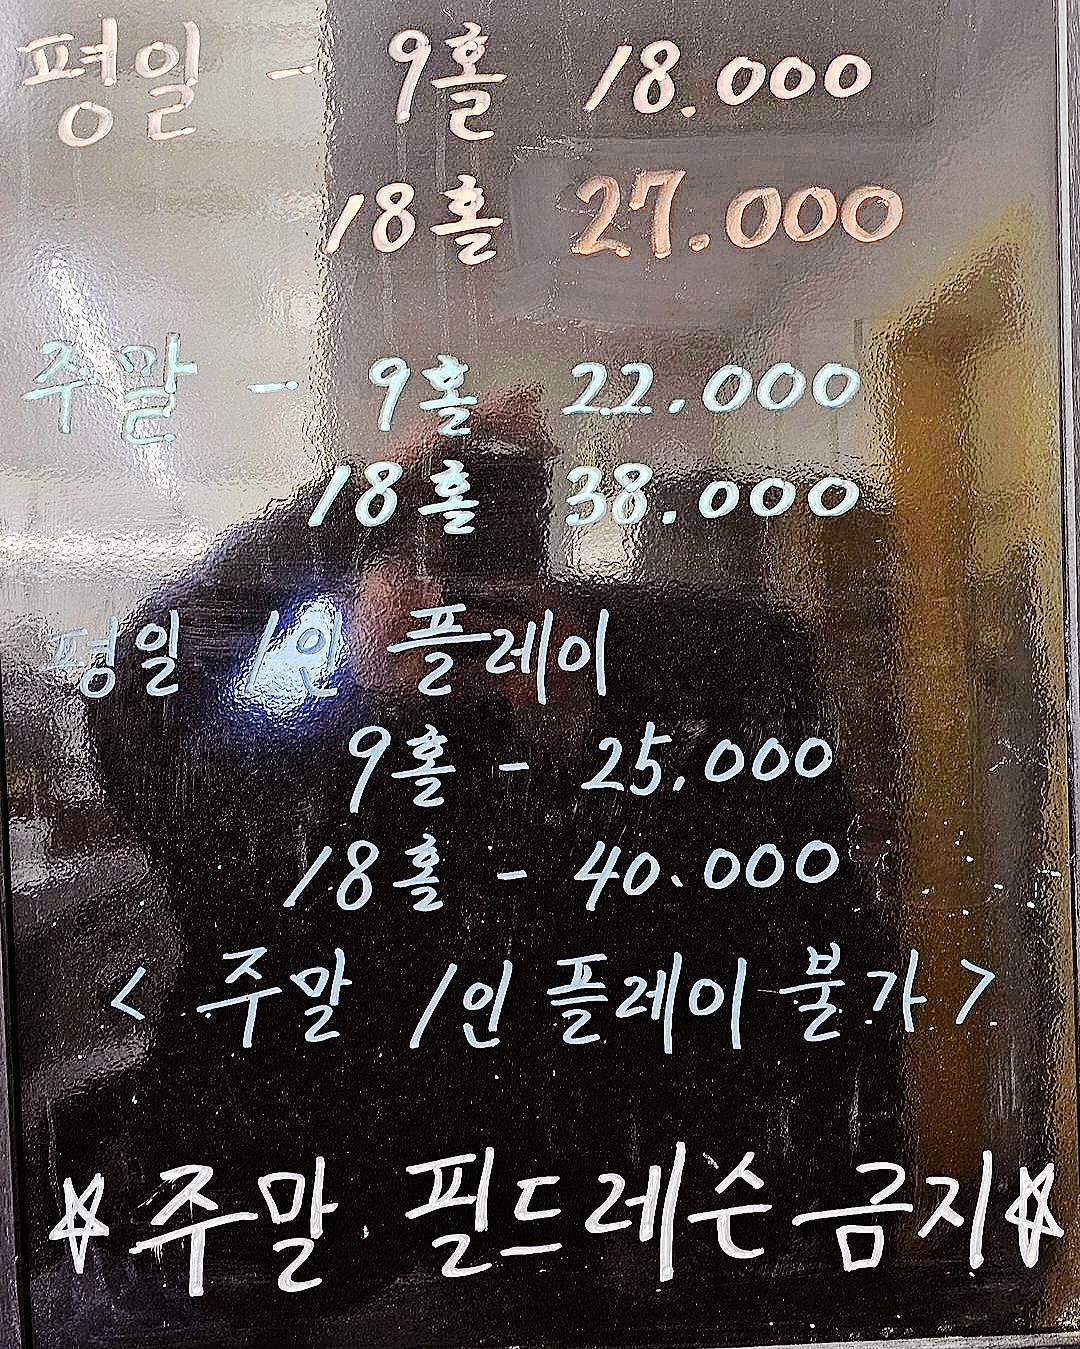 평일 - 9홀 18.000
18홀 27.000
주말 - 9홀 22.000
18홀 38.000
평일 1인 플레이
9홀 - 25.000
18홀 - 40.000
< 주말 1인 플레이 불가 >
☆주말 필드레슨 금지☆